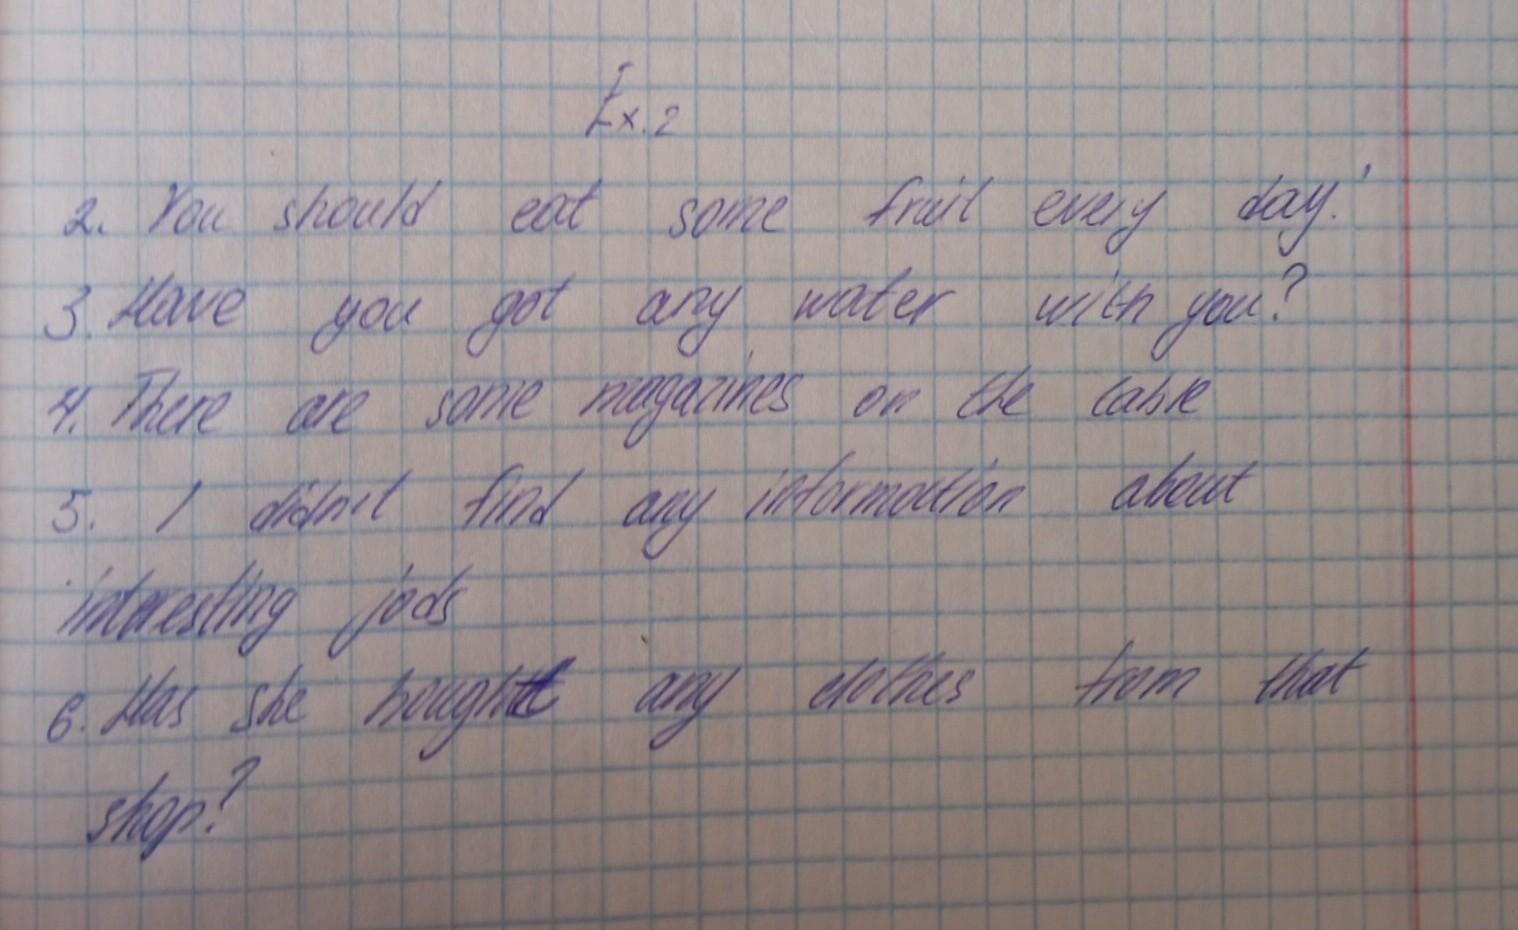 Ex. 2
2. You should eat some fruit every day!
3. Have you got any water with you?
4. There are some magazines on the table
5. I didn't find any information about
interesting jods
6. Has she bought any clothes from that
shop?